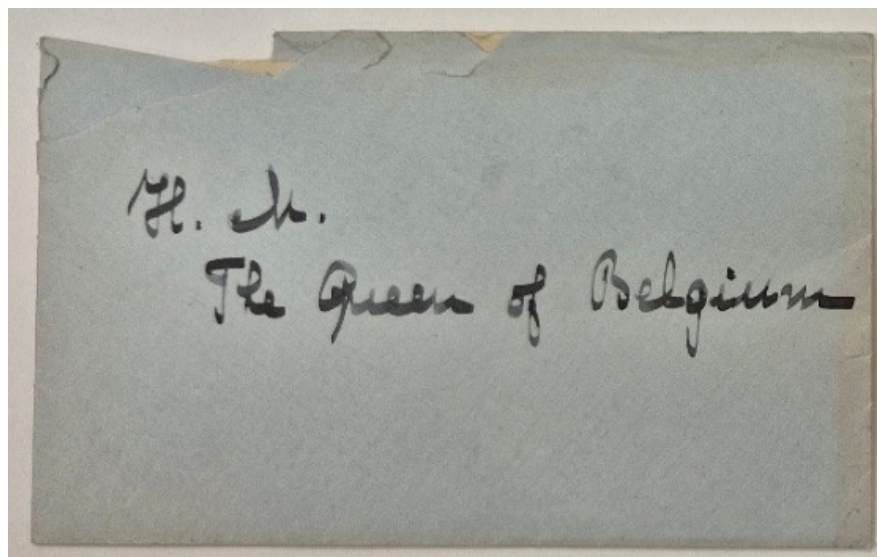 H. M.
The Queen of Belgium